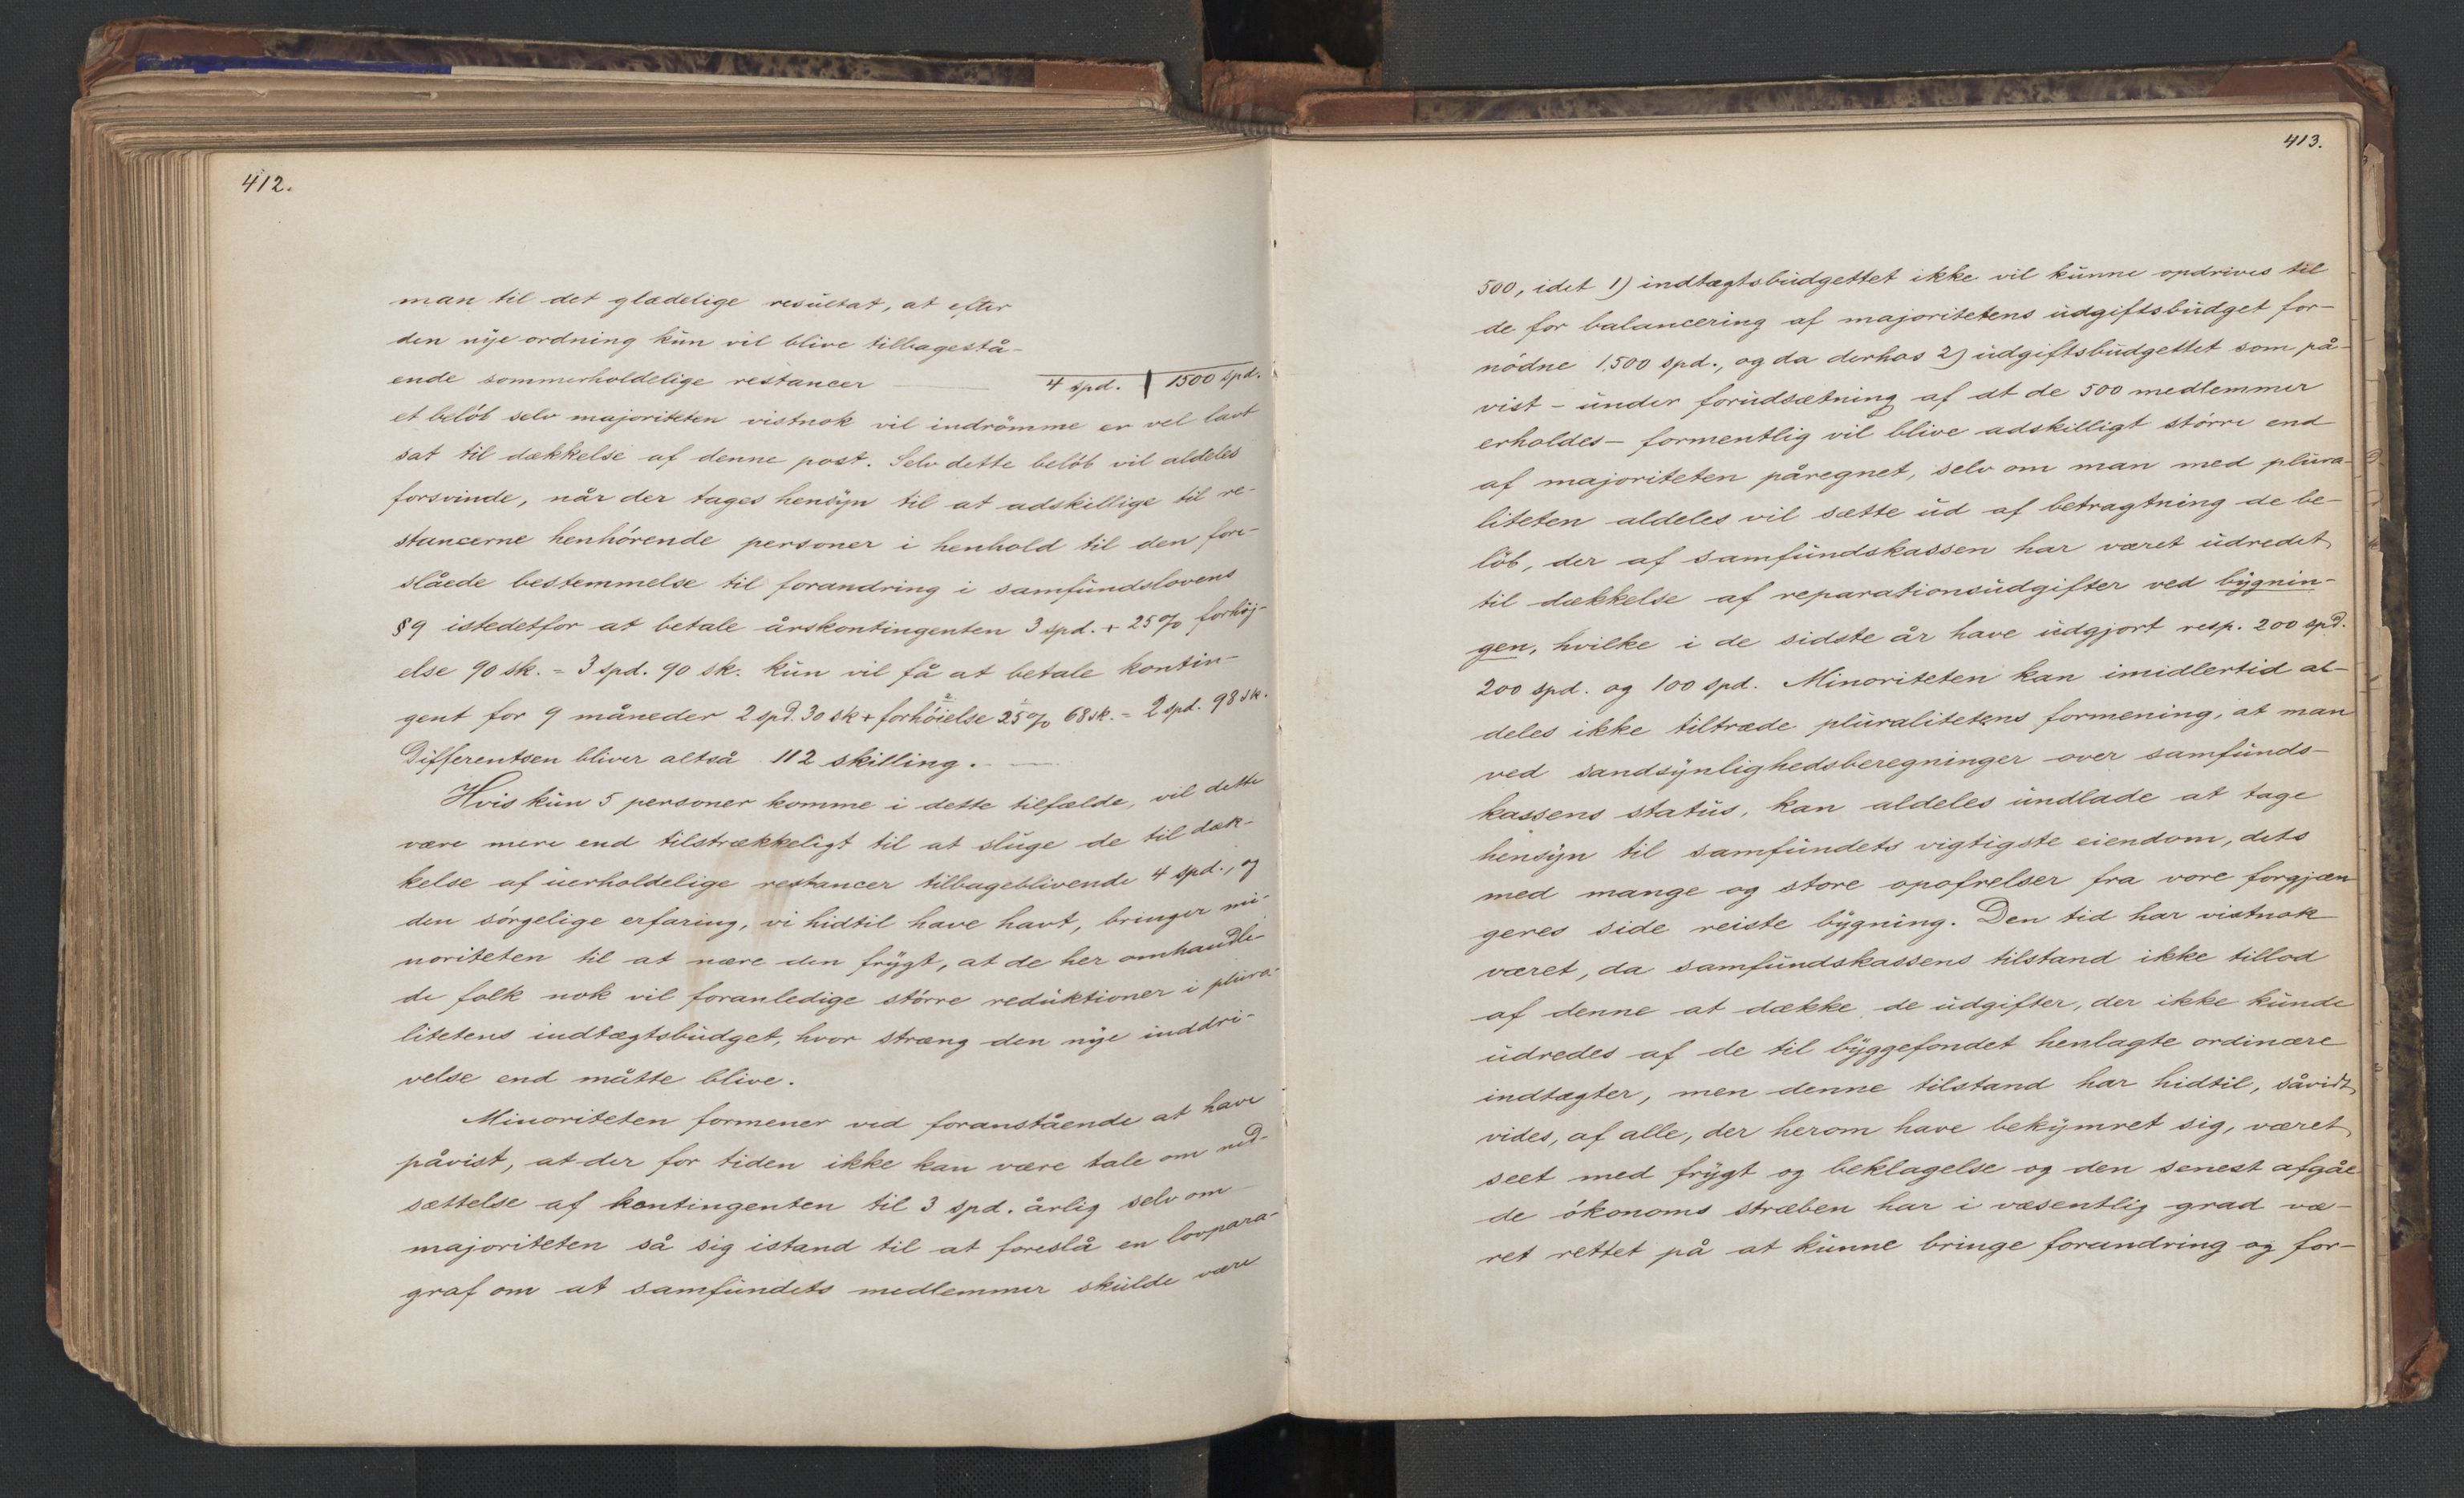 412.
man til det glædelige resultat, at efter
den nye ordning kun vil blive tilbagestå-
ende sommerholdelige restancer 4 spd. | 1500 spd.
et beløb selv majoriteten vistnok vil indrømme er vel lavt
sat til dækkelse af denne post. Selv dette beløb vil aldeles
forsvinde, når der tages hensyn til at adskillige til re-
stancerne henhørende personer i henhold til den fore-
slåede bestemmelse til forandring i samfundslovens
§ 9 istedetfor at betale årskontingenten 3 spd. + 25 % forhøj-
else 90 sk. = 3 spd. 90 sk. kun vil få at betale kontin-
gent for 9 måneder 2 spd. 30 sk + forhøielse 25 % 68 sk. = 2 spd. 98 sk.
Differentsen bliver altså 112 skilling.
Hvis kun 5 personer komme i dette tilfælde, vil dette
være mere end tilstrækkeligt til at sluge de til dæk-
kelse af uerholdelige restancer tilbageblivende 4 spd., og
den sørgelige erfaring, vi hidtil have havt, bringer mi-
noriteten til at nære den frygt, at de her omhandle-
de folk nok vil foranledige større reduktioner i plura-
litetens indtægtsbudget, hvor stræng den nye inddri-
velse end måtte blive.
Minoriteten formener ved foranstående at have
påvist, at der for tiden ikke kan være tale om ned-
sættelse af kontingenten til 3 spd. årlig selv om
majoriteten så sig istand til at foreslå en lovpara-
graf om at samfundets medlemmer skulde være
413.
500, idet 1) indtægtsbudgettet ikke vil kunne opdrives til
de for balancering af majoritetens udgiftsbudget for-
nødne 1,500 spd., og da derhos 2) udgiftsbudgettet som på-
vist – under forudsætning af at de 500 medlemmer
erholdes – formentlig vil blive adskilligt større end
af majoriteten påregnet, selv om man med plura-
liteten aldeles vil sætte ud af betragtning de be-
løb, der af samfundskassen har været udredet
til dækkelse af reparationsudgifter ved bygnin-
gen, hvilke i de sidste år have udgjort resp. 200 spd.
200 spd. og 100 spd. Minoriteten kan imidlertid al-
deles ikke tiltræde pluralitetens formening, at man
ved sandsynlighedsberegninger over samfunds-
kassens status, kan aldeles undlade at tage
hensyn til samfundets vigtigste eiendom, dets
med mange og store opofrelser fra vore forgjæn
geres side reiste bygning. Den tid har vistnok
været, da samfundskassens tilstand ikke tillod
af denne at dække de udgifter, der ikke kunde
udredes af de til byggefondet henlagte ordinære
indtægter, men denne tilstand har hidtil, såvidt
vides, af alle, der herom have bekymret sig, været
seet med frygt og beklagelse og den senest afgåe
de økonoms stræben har i væsentlig grad væ-
ret rettet på at kunne bringe forandring og for-